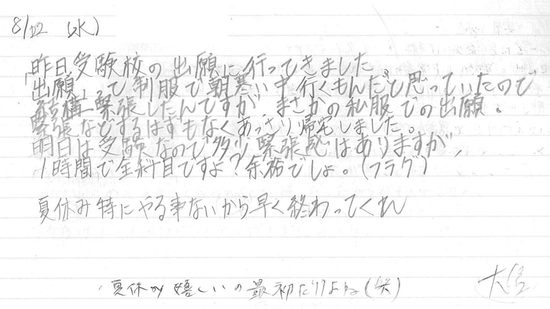 8/22 (水)
昨日受験校の出願に行ってきました
「出願」って制服で朝寒い中行くもんだと思っていたので
結構緊張したんですが、まさかの私服での出願。
緊張などするはずもなくあっさり帰宅しました。
明日は受験なので多少緊張感はありますが、
1時間で全科目ですよ？余裕でしょ。(フラグ)
夏休み特にやる事ないから早く終わってくれ
夏休み嬉しいの最初だけよね(笑)